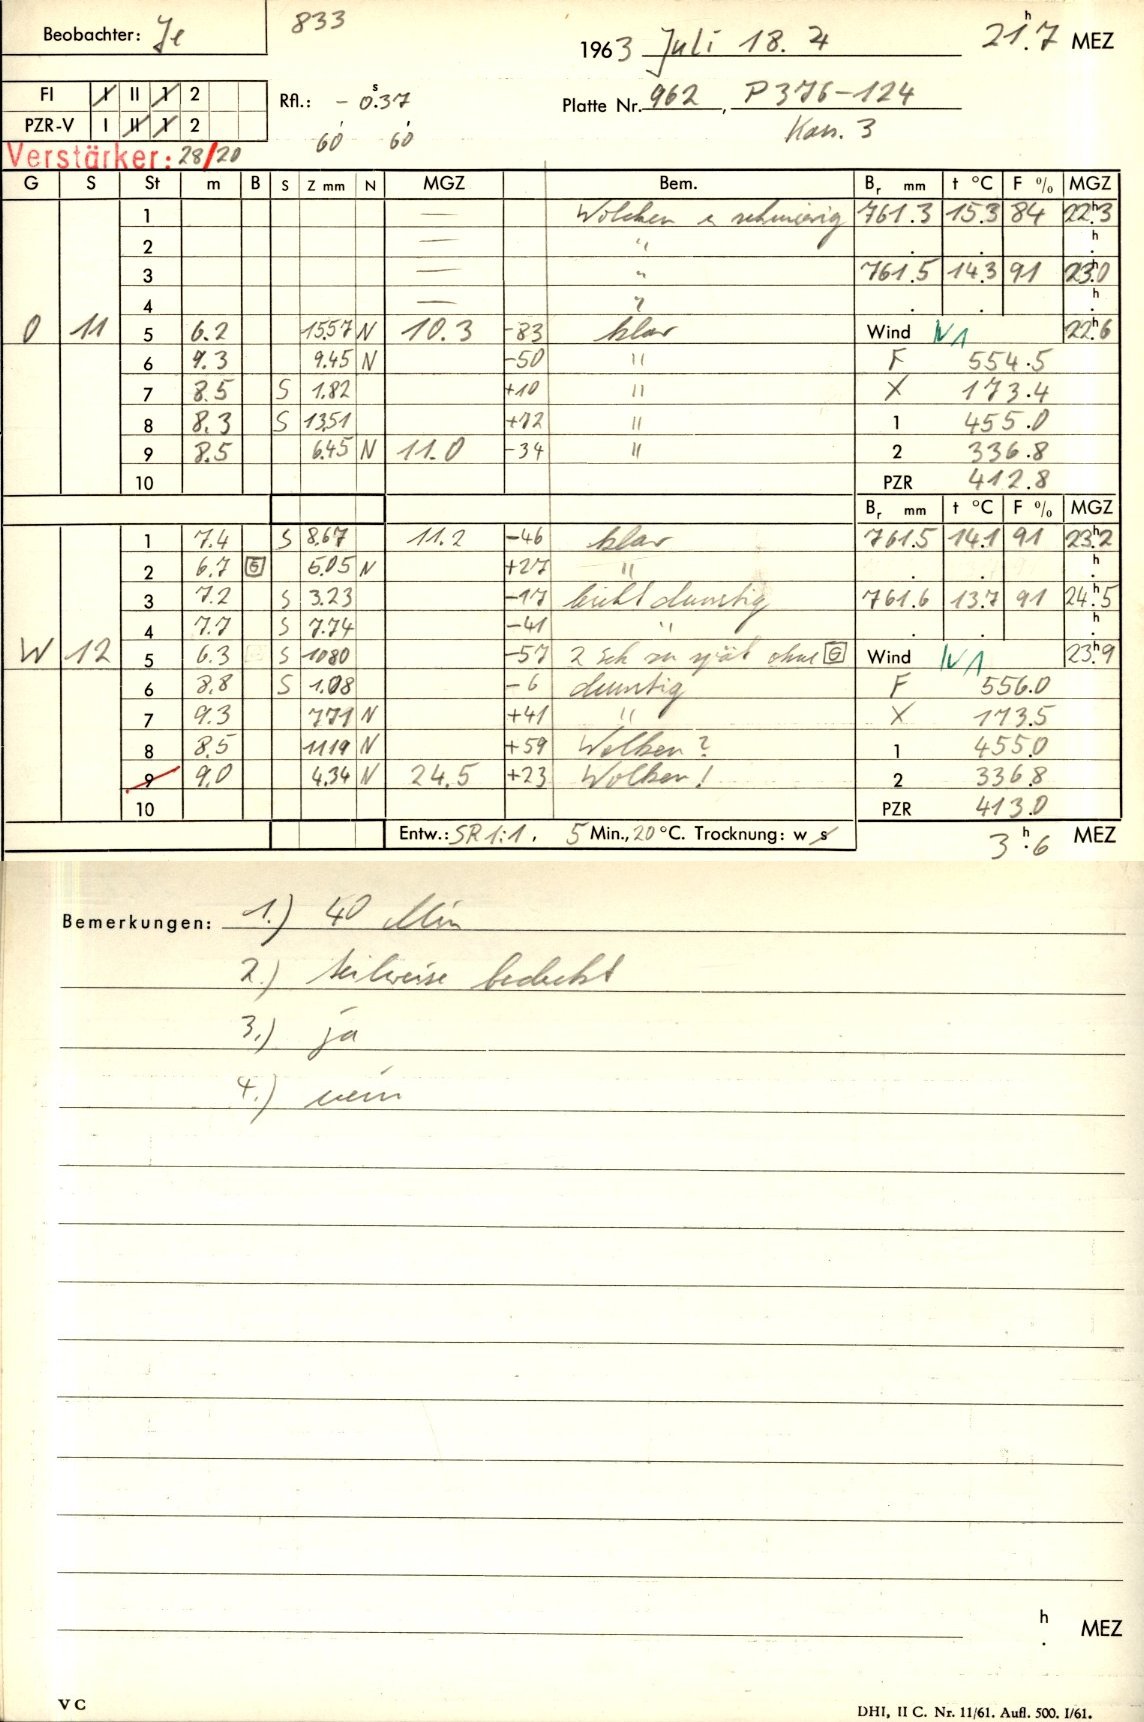 Beobachter: Je 833 1963 Juli 18. 4 21h.7 MEZ
FI I II 1 2 Rfl.: - 0s.37 Platte Nr. 962, P 376-124
PZR-V I II 1 2 60 60 Kas. 3
Verstärker: 28/20
G S St m B S Z mm N MGZ Bem. Br mm t °C F % MGZ
1 — Wolken u schmierig 761.3 15.3 84 22h3
2 — " . . h.
3 — " 761.5 14.3 91 23h0
4 — " . . h.
O 11 5 6.2 15.57 N 10.3 -83 klar Wind N1 22h6
6 9.3 9.45 N -50 " F 554.5
7 8.5 S 1.82 +10 " X 173.4
8 8.3 S 13.51 +72 " 1 455.0
9 8.5 6.45 N 11.0 -34 " 2 336.8
10 PZR 412.8
Br mm t °C F % MGZ
1 7.4 S 8.67 11.2 -46 klar 761.5 14.1 91 23h2
2 6.7 G 5.05 N +27 " . . h.
3 7.2 S 3.23 -17 leicht dunstig 761.6 13.7 91 24h5
4 7.7 S 7.74 -41 " . . h.
W 12 5 6.3 S 10.80 -57 2 Sek zu spät ohne G Wind N1 23h9
6 8.8 S 1.08 -6 dunstig F 556.0
7 9.3 7.71 N +41 " X 173.5
8 8.5 11.19 N +59 Wolken? 1 455.0
9 9.0 4.34 N 24.5 +23 Wolken! 2 336.8
10 PZR 413.0
Entw.: SR 1:1. 5 Min., 20 °C. Trocknung: w s 3h.6 MEZ
Bemerkungen: 1.) 40 Min
2.) teilweise bedeckt
3.) ja
4.) nein
h. MEZ
V C DHI, II C. Nr. 11/61. Aufl. 500. I/61.